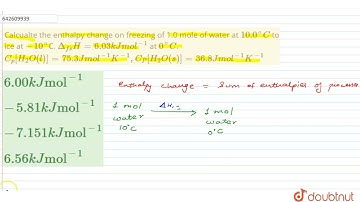 642609939
Calcualte the enthalpy change on freezing of 1.0 mole of water at 10.0°C to
ice at −10°C. Δ_fus H = 6.03kJmol⁻¹ at 0°C.
C_P[H₂O(l)] = 75.3Jmol⁻¹K⁻¹, C_P[H₂O(s)] = 36.8Jmol⁻¹K⁻¹
6.00kJmol⁻¹
−5.81kJmol⁻¹
−7.151kJmol⁻¹
6.56kJmol⁻¹
Enthalpy change = Sum of enthalpies of process
1 mol water 10°C
ΔH₁
1 mol water 0°C
doubtnut